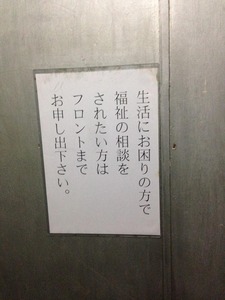 生活にお困りの方で
福祉の相談を
されたい方は
フロントまで
お申し出下さい。